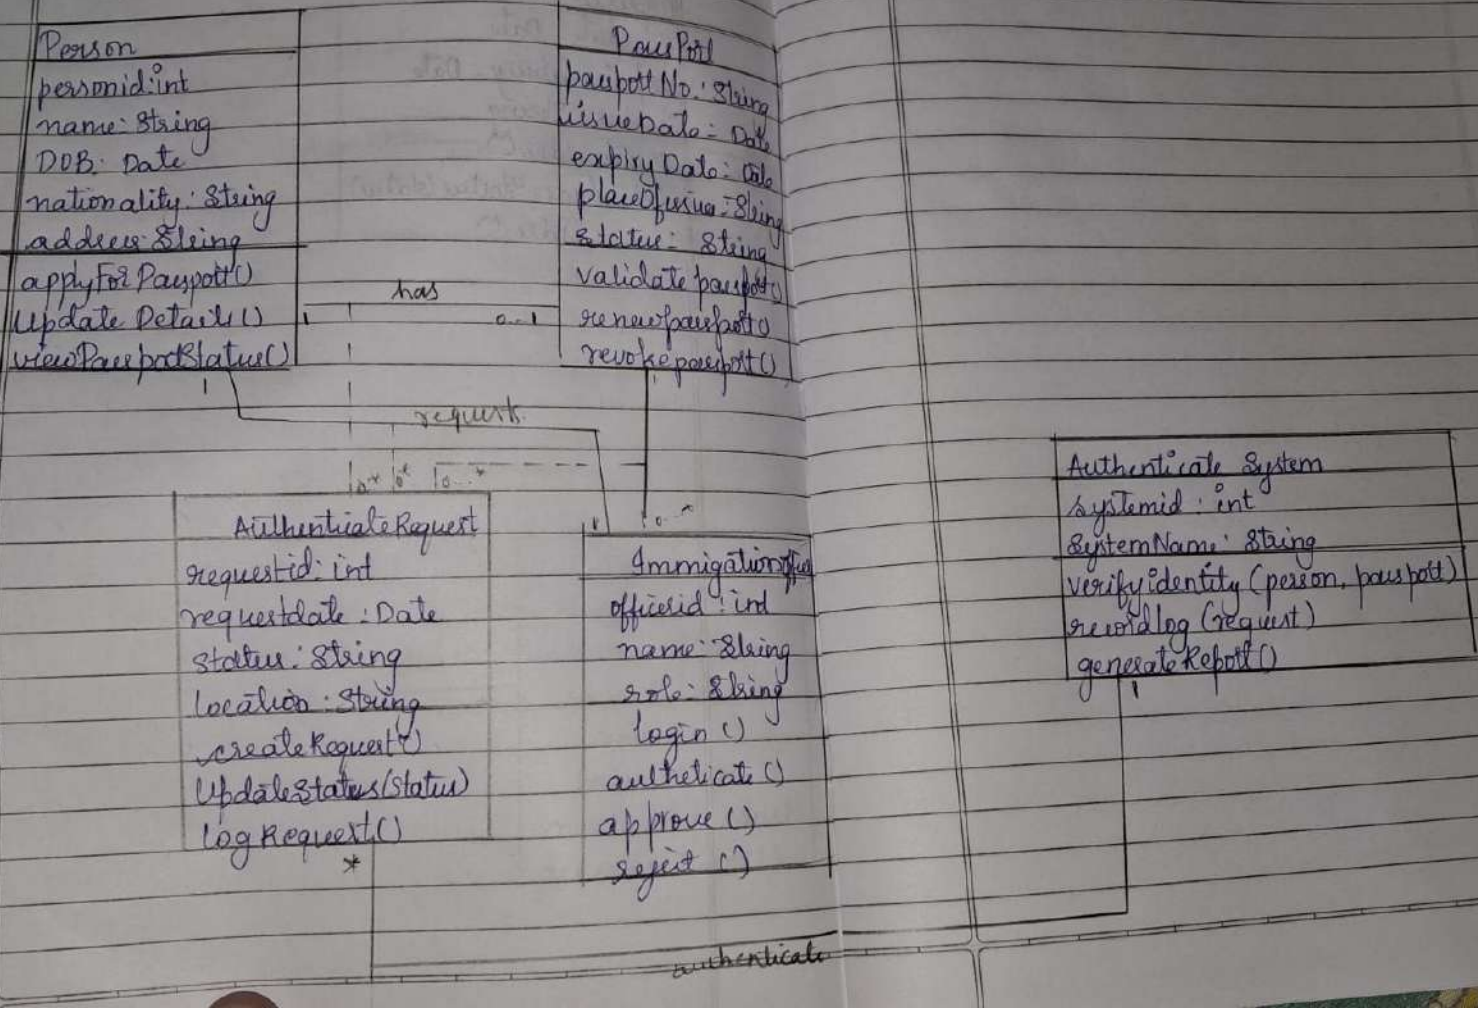 Person
personid: int
name: String
DOB: Date
nationality: String
address: String
applyForPassport()
Update Details()
viewPassportStatus()
PassPort
passportNo.: String
issueDate: Date
expiryDate: Date
placeOfissue: String
status: String
validate passport()
renewpassport()
revokepassport()
has
1
0..1
1
request
0..*
AuthenticateRequest
requestid: int
requestdate: Date
status: String
location: String
createRequest()
UpdateStatus(status)
logRequest()
*
1
0..*
officerid: int
name: String
role: String
login()
autheticate()
approve()
reject()
Authenticate System
systemid: int
SystemName: String
verifyidentity(person, passport)
recordlog(request)
generateReport()
1
authenticate